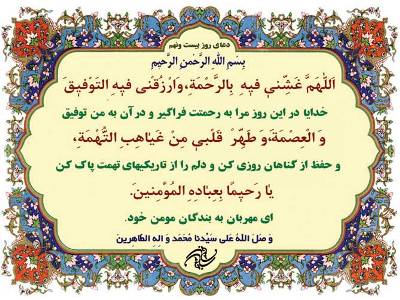 دعای روز بیست ونهم
بِسْمِ اللَّهِ الرَّحْمنِ الرَّحِیمِ
اَللّهُمَّ غَشِّنی فیهِ بِالرَّحْمَةِ،وَارْزُقْنی فیهِ التَّوْفیقَ
خدایا در این روز مرا به رحمتت فراگیر و درآن به من توفیق
وَ الْعِصْمَةَ،وَ طَهِّرْ قَلْبی مِنْ غَیاهِبِ التُّهْمَةِ،
و حفظ از گناهان روزی کن و دلم را از تاریکیهای تهمت پاک کن
یا رَحیمًا بِعِبادِهِ الْمُؤْمِنینَ.
ای مهربان به بندگان مومن خود.
وَ صَلَ اللهُ عَلی سَیِّدِنا مُحَمَد وَ الِهِ الطّاهِرین